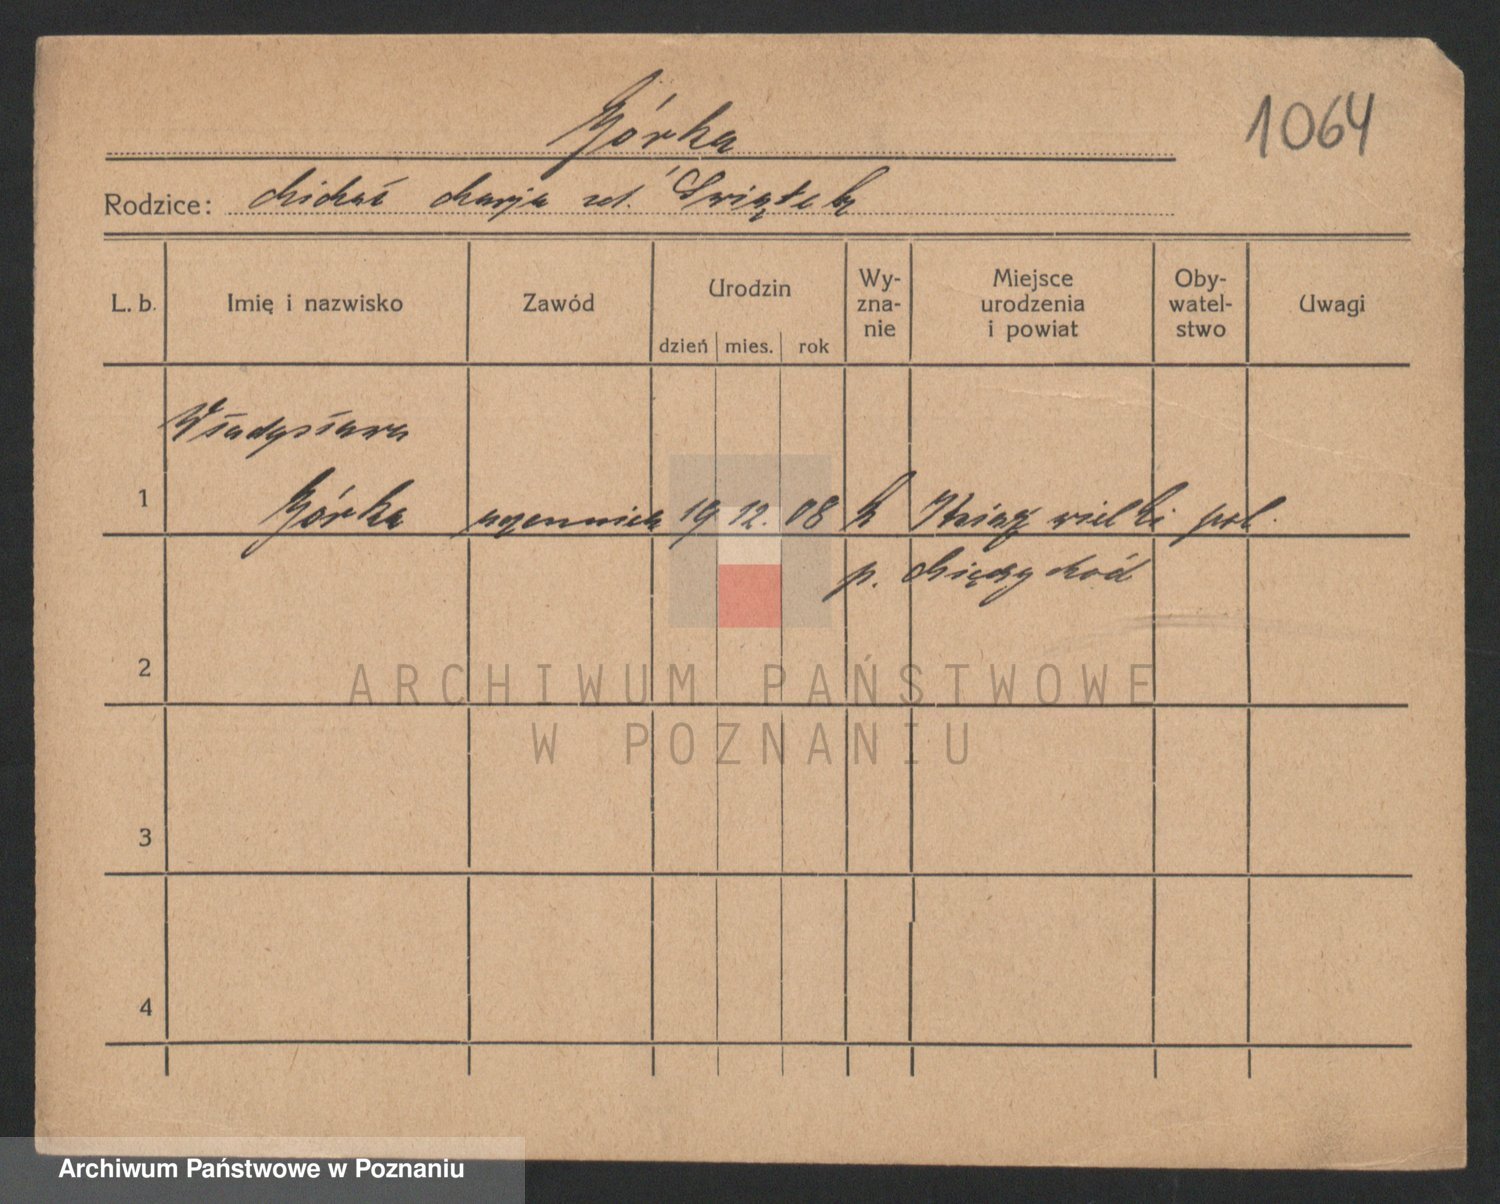 Górka
1064
Rodzice: Michał Marja zd. Świątek
L. b. Imię i nazwisko Zawód Urodzin Wy- zna- nie Miejsce urodzenia i powiat Oby- watel- stwo Uwagi
dzień mies. rok
Władysława
1 Górka uczennica 19 12. 08 k Książ wielki pol.
p. Międzychód
2
ARCHIWUM PAŃSTWOWE
W POZNANIU
3
4
Archiwum Państwowe w Poznaniu